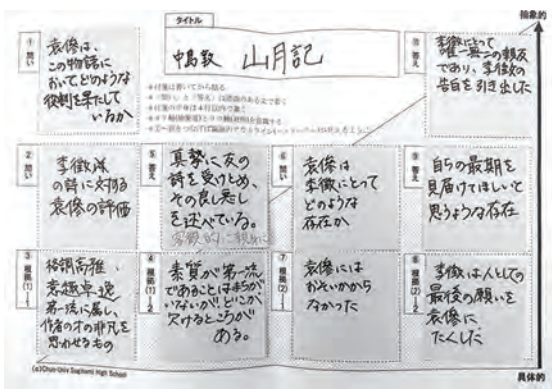 抽象的
タイトル
中島敦 山月記
① 問い
袁傪は、
この物語に
おいてどのような
役割を果たして
いるか
⑩ 答え
李徴にとって
唯一無二の親友
であり、李徴の
告白を引き出した
② 問い
李徴の詩に対する
袁傪の評価
⑤ 答え
真摯に友の
詩を受けとめ、
その良し悪し
を述べている。
⑥ 問い
袁傪は
李徴にとって
どのような
存在か
⑨ 答え
自らの最期を
見届けてほしいと
思うような存在
③ 根拠(1)-1
格調高雅、
意趣卓逸
第一流に属し、
作者の才の非凡を
思わせるもの
④ 根拠(1)-2
素質が第一流
であることはまちが
いないが、どこか
欠けるところが
ある。
⑦ 根拠(2)-1
袁傪には
おそいかから
なかった
⑧ 根拠(2)-2
李徴は人としての
最後の願いを
袁傪に
たくした
(c)Chuo Univ Suginami High School
具体的